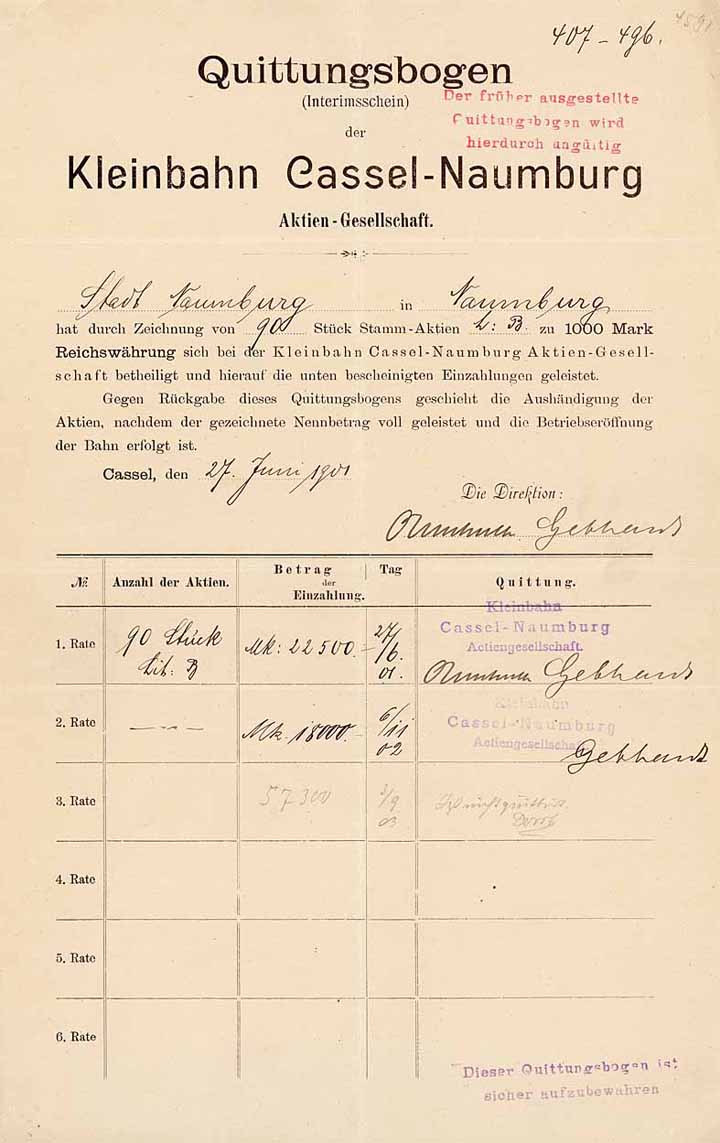 4591
407 – 496.
Quittungsbogen
(Interimsschein)
Der früher ausgestellte
Quittungsbogen wird
hierdurch ungültig
der
Kleinbahn Cassel-Naumburg
Aktien-Gesellschaft.
Stadt Naumburg in Naumburg
hat durch Zeichnung von 90 Stück Stamm-Aktien L: B. zu 1000 Mark
Reichswährung sich bei der Kleinbahn Cassel-Naumburg Aktien-Gesell-
schaft betheiligt und hierauf die unten bescheinigten Einzahlungen geleistet.
Gegen Rückgabe dieses Quittungsbogens geschieht die Aushändigung der
Aktien, nachdem der gezeichnete Nennbetrag voll geleistet und die Betriebseröffnung
der Bahn erfolgt ist.
Cassel, den 27. Juni 1901
Die Direktion:
Gebhardt
№ Anzahl der Aktien. Betrag der Einzahlung. Tag Quittung.
Kleinbahn
Cassel-Naumburg
Actiengesellschaft.
1. Rate 90 Stück Lit: B Mk: 22500.– 27/6. 01. Gebhardt
Kleinbahn
Cassel-Naumburg
Actiengesellschaft
2. Rate – " – Mk. 18000.– 6/11 02 Gebhardt
3. Rate 57300 3/9 03 Ist nicht quittirt.
4. Rate
5. Rate
6. Rate
Dieser Quittungsbogen ist
sicher aufzubewahren